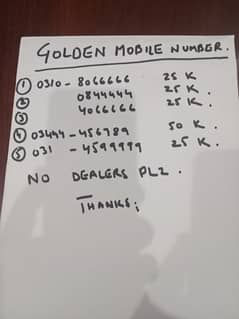 GOLDEN MOBILE NUMBER.
① 0310 - 8066666 25 K
② 0844444 25 K.
③ 4066666 25 K.
④ 03444 - 456789 50 K.
⑤ 031 - 4599999 25 K.
NO DEALERS PLZ.
THANKS;